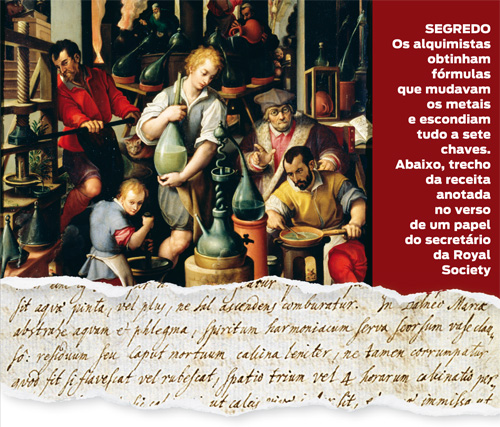 SEGREDO
Os alquimistas
obtinham
fórmulas
que mudavam
os metais
e escondiam
tudo a sete
chaves.
Abaixo, trecho
da receita
anotada
no verso
de um papel
do secretário
da Royal
Society
sit aqvæ pinta, vel plus, ne sal ascendens comburatur. In balneo Mariæ
abstrahe aquam et phlegma, spiritum harmoniacum serva seorsum vase clau
so: residuum seu caput mortuum calcina leniter, ne tamen corrumpatur
qvod fit si flavescat vel rubescat, spatio trium vel 4 horarum calcinatio per